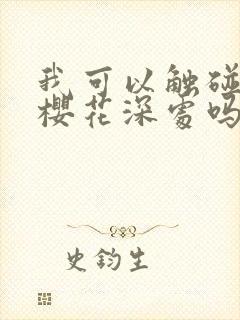 我可以触碰
樱花深处吗
史钧生